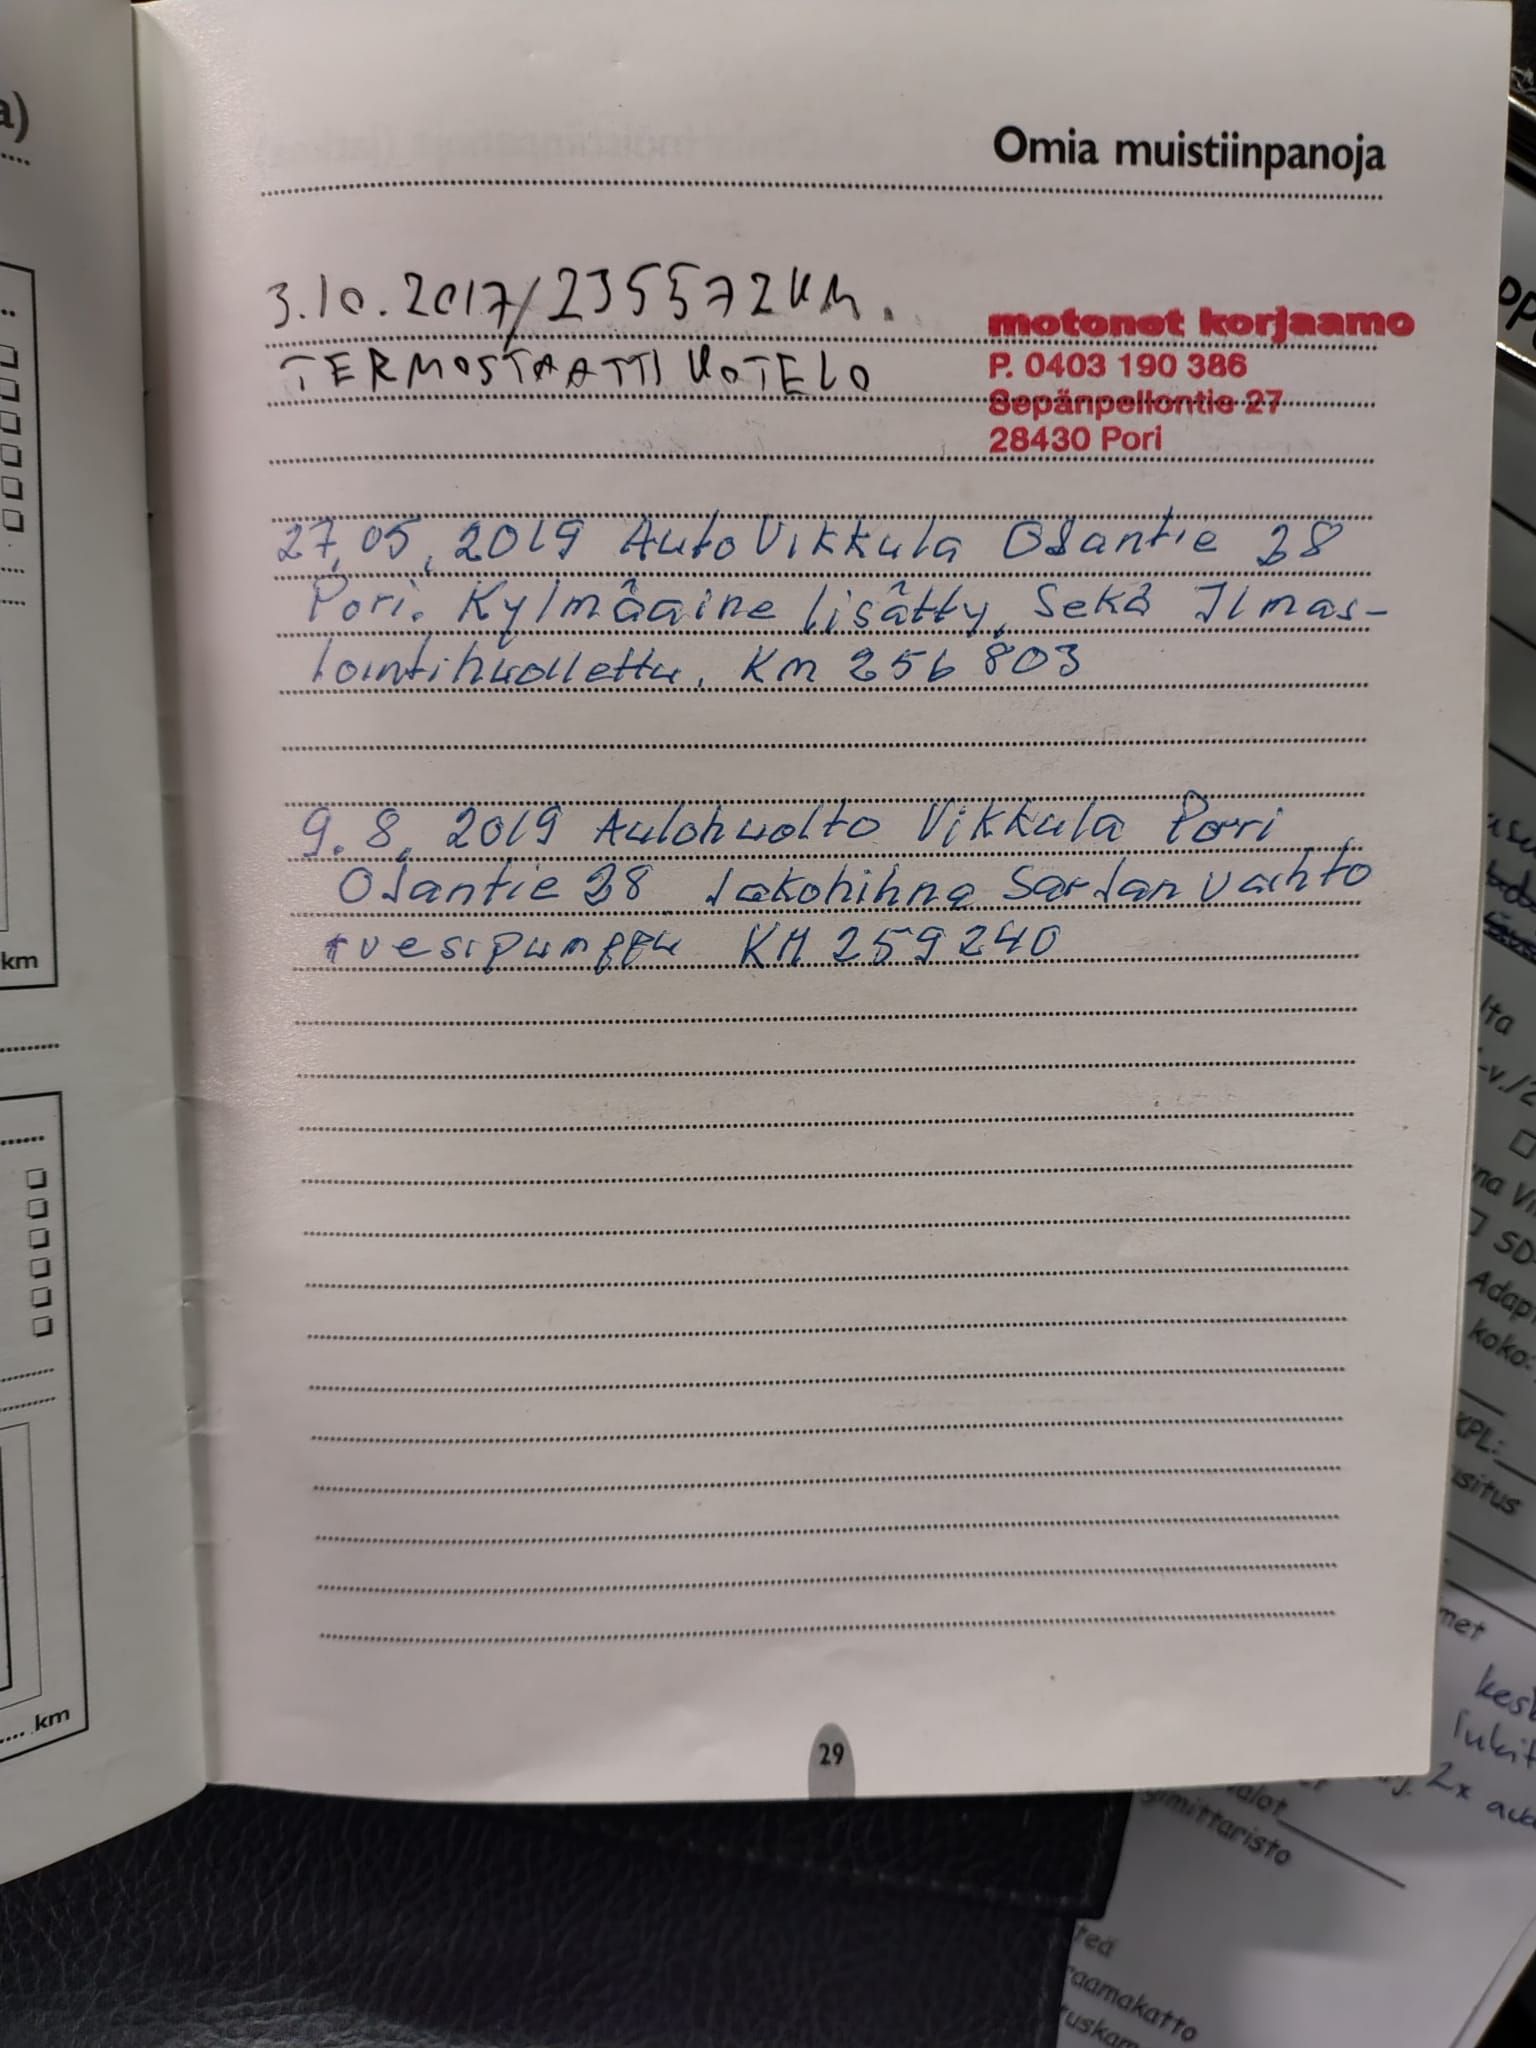 a)
Omia muistiinpanoja
3.10.2017/235572KM.
TERMOSTAATTI KOTELO
motonet korjaamo
P. 0403 190 386
Sepänpellontie 27
28430 Pori
27.05.2019 Auto Vikkula Ojantie 28
Pori. Kylmäaine lisätty, Sekä Ilmas-
tointihuollettu. KM 256 803
9.8.2019 Autohuolto Vikkula Pori
Ojantie 28 Jakohihna Sarjan vaihto
+vesipumppu KM 259240
km
km
29
lta
SD-
koko:
KPL:
2x
gimittaristo